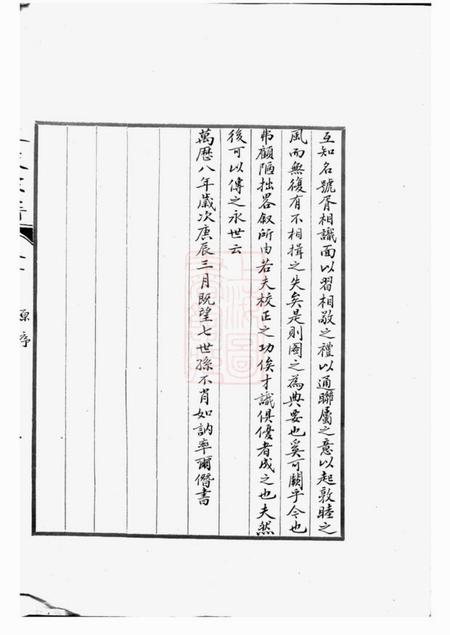 互知名號胥相識面以習相敬之禮以通聯屬之意以起敦睦之
風而無復有不相揖之失矣是則圖之為典要也奚可闕乎今也
弗顧陋拙畧叙所由若夫校正之功俟才識俱優者成之也夫然
後可以傳之永世云
萬曆八年歲次庚辰三月既望七世孫不肖如訥率爾僭書
原序